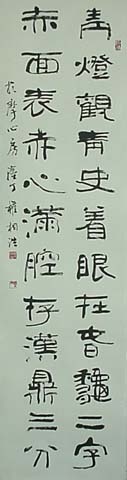 青燈觀青史着眼在春龝二字
赤面表赤心滿腔存漢鼎三分
於靜心房